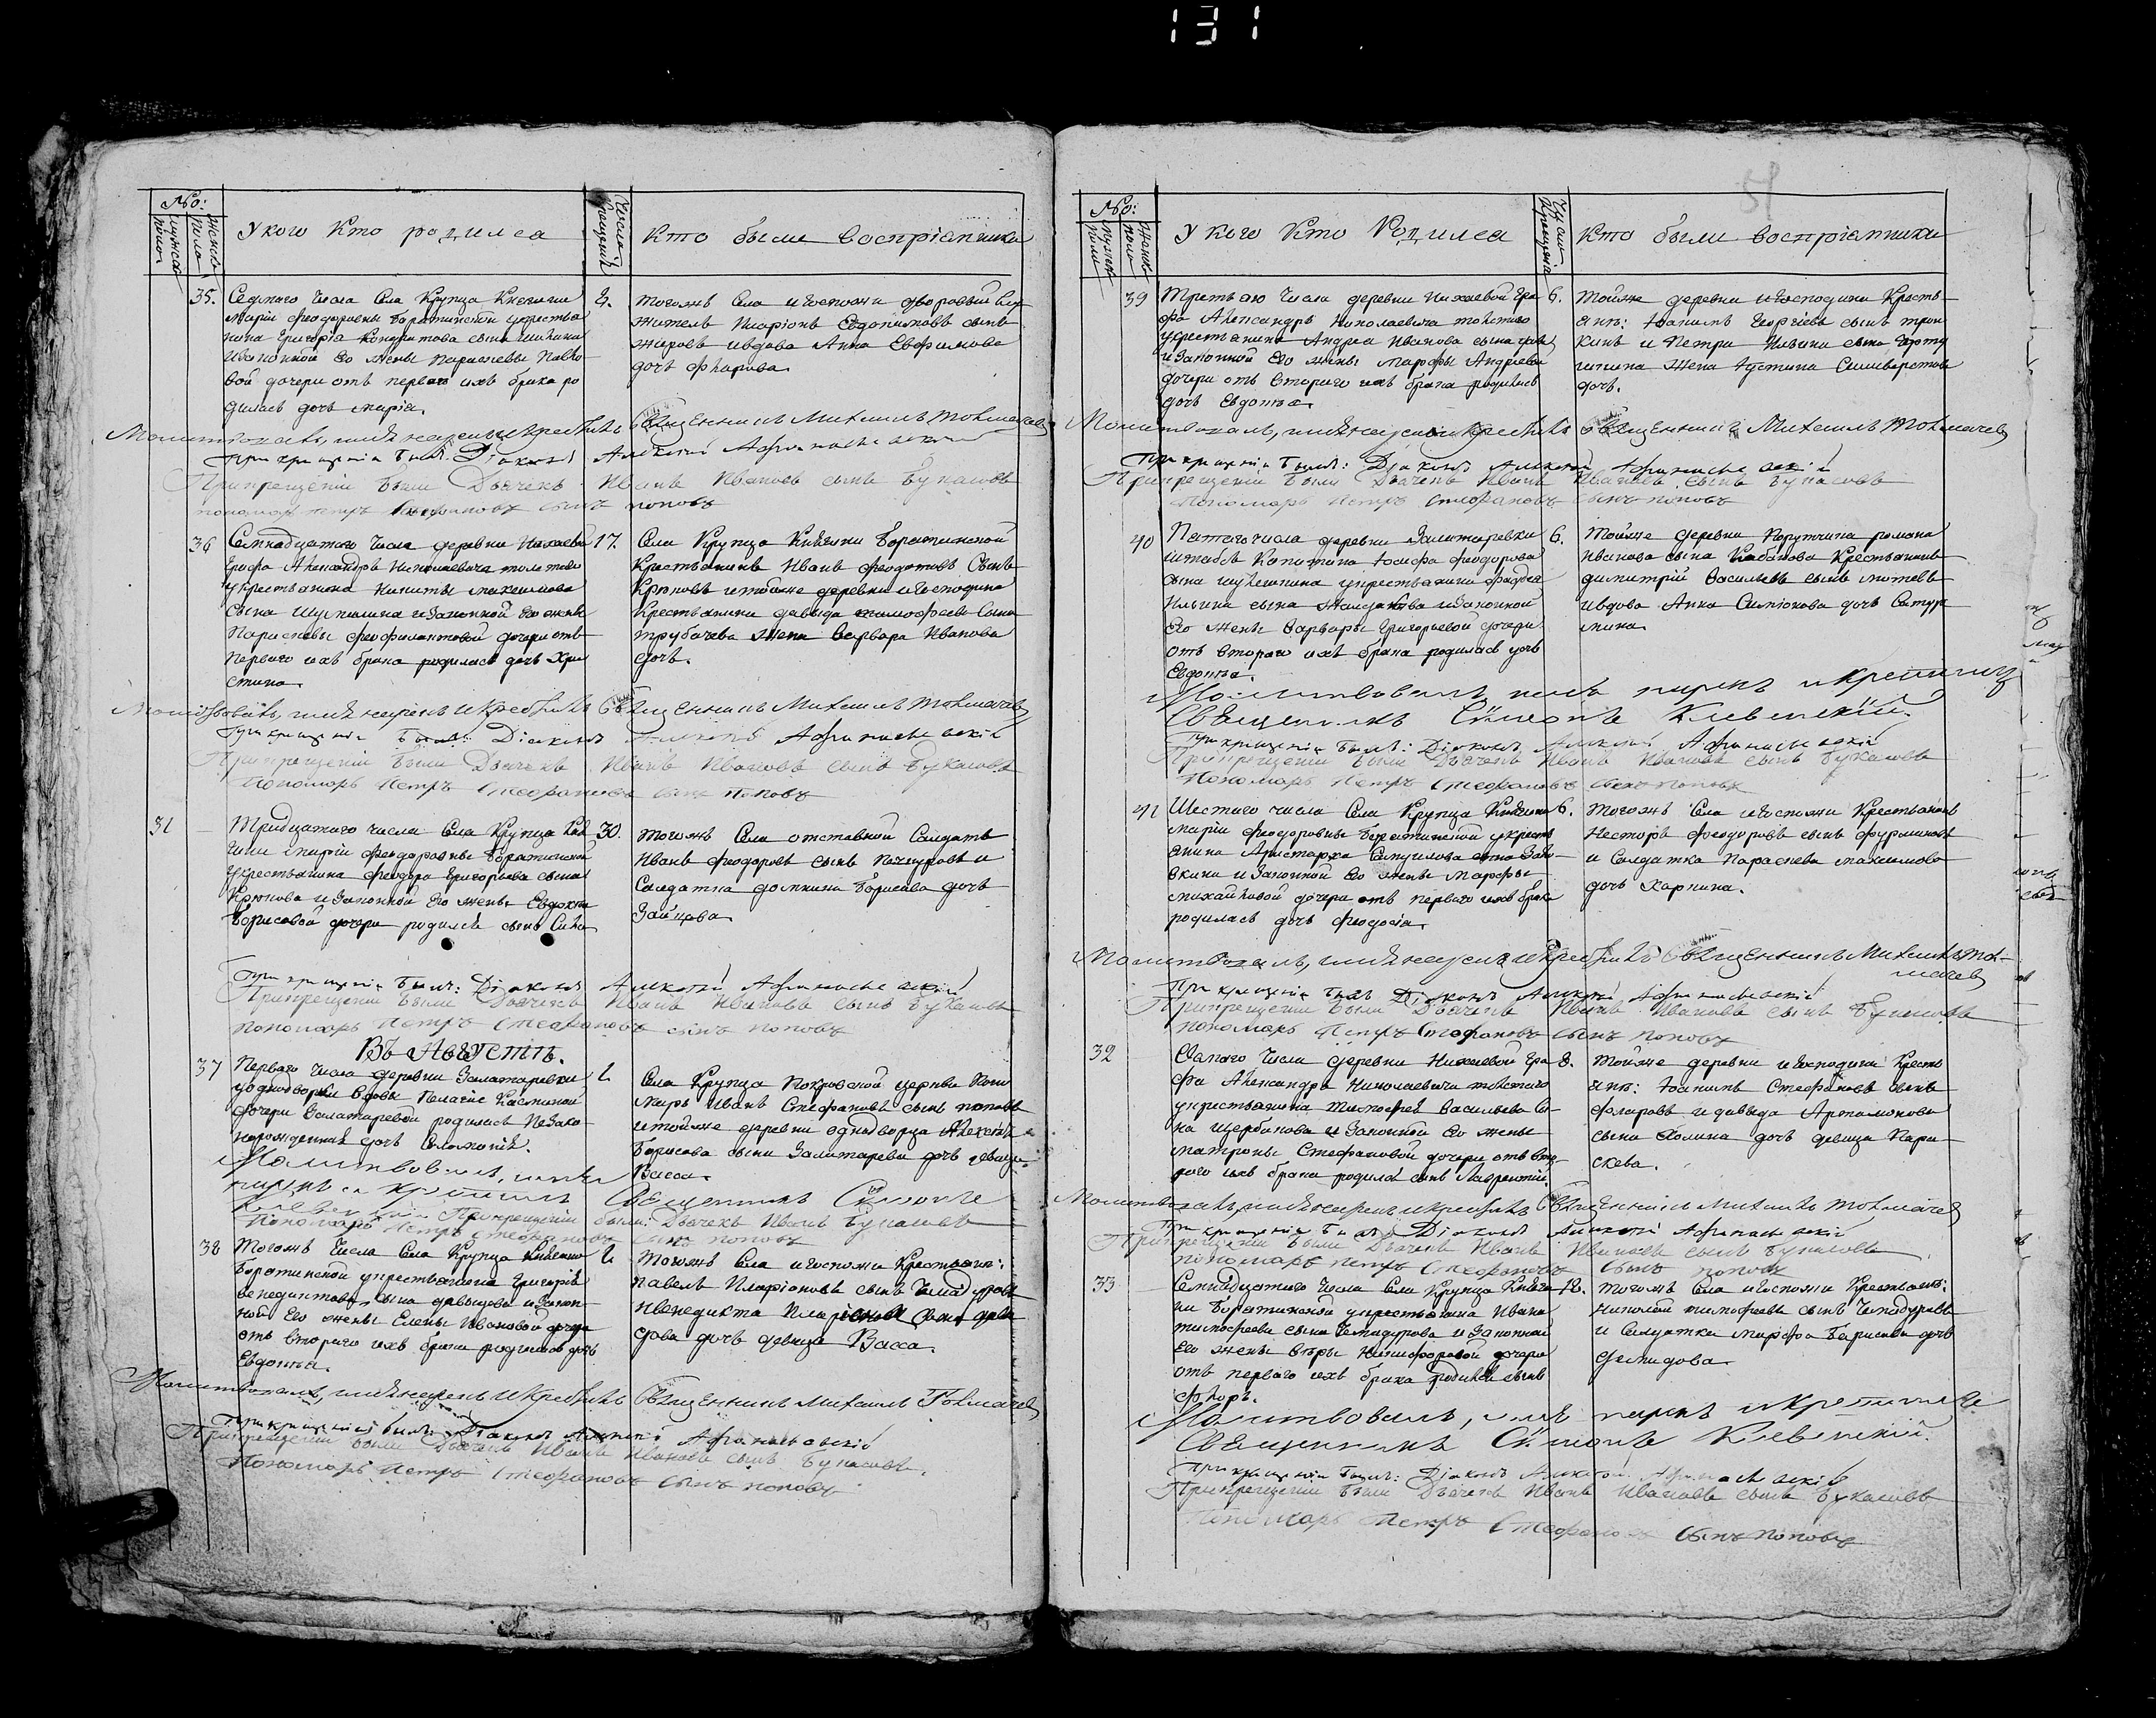 131
No:
мужеска пола
женска пола
У кого Кто родилса
Число крещения
Кто были воспріемники
35.
Седмаго Числа Села Крупца Княгини
Маріи Феодоровны Боратинской укрестья
нина Григорія Кондратова сына
изаконной Его жены Парасковьи Павло
вой дочери отъ перваго ихъ брака ро
дилась дочь Марія.
9.
тогожъ Села игоспожи дворовый слу
житель Иларіонъ Евдокимовъ сынъ
Жаровъ ивдова Анна Евфимова
дочь Фларова
Молитвовалъ, имя нарекъ икрестилъ Священникъ Михаилъ Толмачевъ
При крещеніи былъ: Діаконъ Алексій Афанасьевскій
Прикрещеніи были Дьячекъ Иванъ Ивановъ сынъ Букасовъ
пономарь Петръ Стефановъ сынъ поповъ
36
Семнадцатаго Числа деревни Нижаевой
Графа Александра Николаевича толстаго
укрестьянина Никиты Максимова
сына Шупилина изаконной Его жены
Парасковьи Феофилактовой дочери отъ
перваго ихъ брака родилась дочь Хри
стина
17.
Села Крупца Княгини Боратинской
Крестьянинъ Иванъ Феодотовъ Сынъ
Крюковъ итойже деревни игосподина
Крестьянина давыда тимофеева Сына
трубачева жена Варвара Иванова
дочь.
Молитвовалъ, имя нарекъ икрестилъ Священникъ Михаилъ Толмачевъ
При крещеніи былъ: Діаконъ Алексій Афанасьевскій
Прикрещеніи были Дьячекъ Иванъ Ивановъ сынъ Букасовъ
Пономарь Петръ Стефановъ сынъ Поповъ
31
Тридцатаго числа Села Крупца Кня
гини Маріи Феодоровны Боратинской
укрестьянина Феодора Григорьева сына
Крюкова изаконной Его жены Евдокіи
Борисовой дочери родился сынъ Сила
30.
тогожъ Села отставной Салдатъ
Иванъ Феодоровъ сынъ Печуровъ и
Салдатка домнина Борисова дочь
Зайцова
При крещеніи былъ: Діаконъ Алексій Афанасьевскій
Прикрещеніи были Дьячекъ Иванъ Ивановъ сынъ Букасовъ
пономарь Петръ Стефановъ сынъ поповъ
Въ Августѣ.
37
Перваго Числа деревни Залатаревки
уоднодворки вдовы Пелагіи Кастиной
дочери Залатаревой родилась Незако
норожденная дочь Соломонія.
1.
Села Крупца Покровской церкви Поно
марь Иванъ Стефановъ сынъ поповъ
итойже деревни однодворца Алексѣя
Борисова сына Залатарева дочь девица
Васса.
Молитвовалъ, имя
нарекъ и крестилъ Священникъ Симонъ
Клевенскій Прикрещеніи были: Дьячекъ Иванъ Букасовъ
Пономарь Петръ Стефановъ сынъ поповъ
38
Тогожъ Числа Села Крупца Княгини
Боратинской укрестьянина Григорія
Венедиктова сына давыдова изакон
ной Его жены Елены Ивановой дочери
отъ втораго ихъ брака родилась дочь
Евдокіа.
1.
тогожъ Села игоспожи Крестьян:
Павелъ Иларіоновъ сынъ Чемодуровъ
ивенедикта Иларіонова сына давы
дова дочь девица Васса.
Молитвовалъ, имя нарекъ икрестилъ Священникъ Михаилъ Толмачевъ
При крещеніи былъ: Діаконъ Алексій Афанасьевскій
Прикрещеніи были Дьячекъ Иванъ Ивановъ сынъ Букасовъ.
Пономарь Петръ Стефановъ сынъ поповъ
51
No:
мужеска пола
женска пола
У кого Кто Родилса
Число крещенія
Кто были воспріемники
39
Третьяго Числа деревни Нижаевой Гра
фа Александра Николаевича толстаго
укрестьянина Андрея Иванова сына
изаконной Его жены Марфы Андреевой
дочери отъ втораго ихъ брака родилась
дочь Евдокіа.
6.
тойже деревни игосподина Кресть
янъ: Іоакимъ Георгіевъ сынъ трон
кинъ и Петра Ильина сына
жена Іустина Селиверстова
дочь.
Молитвовалъ, имя нарекъ икрестилъ Священникъ Михаилъ Толмачевъ
При крещеніи былъ: Діаконъ Алексій Афанасьевскій
Прикрещеніи были Дьячекъ Иванъ Ивановъ сынъ Букасовъ
Пономарь Петръ Стефановъ сынъ поповъ
40
Пятаго числа деревни Залатаревки
штабсъ Капитана Іосифа Феодорова
сына Шуклинина укрестьянина Фаддея
Ильина сына изаконной
Его жены Варвары Григорьевой дочери
отъ втораго ихъ брака родилась дочь
Евдокіа.
6.
Тойже деревни Порутчика романа
Иванова сына Кабанова Крестьянинъ
димитрій Васильевъ сынъ мотевъ
ивдова Анна Симіонова дочь Сатур
мина.
Молитвовалъ имя нарекъ икрестилъ
Священникъ Симонъ Клевенскій
При крещеніи былъ: Діаконъ Алексій Афанасьевскій
Прикрещеніи были Дьячекъ Иванъ Ивановъ сынъ Букасовъ
Пономарь Петръ Стефановъ сынъ поповъ
41
Шестаго числа Села Крупца Княгини
Маріи Феодоровны Боратинской укресть
янина Аристарха Самуилова сына
изаконной Его жены Марфы
михайловой дочери отъ перваго ихъ брака
родилась дочь Феодосіа.
6.
тогожъ Села игоспожи Крестьянинъ
Несторъ Феодоровъ сынъ Фурсиковъ
и Салдатка Парасковья Максимова
дочь Карпина.
Молитвовалъ, имя нарекъ икрестилъ Священникъ Михаилъ Тол-
мачевъ
При крещеніи былъ Діаконъ Алексій Афанасьевскій
Прикрещеніи были Дьячекъ Иванъ Ивановъ сынъ Букасовъ
пономарь Петръ Стефановъ сынъ поповъ
32
Осмаго Числа деревни Нижаевой Гра
фа Александра Николаевича толстаго
укрестьянина тимофея Васильева Сы
на Щербинова изаконной Его жены
матроны Стефановой дочери отъ вто
раго ихъ брака родился сынъ Лаврентій.
8.
тойже деревни игосподина Кресть
янъ: Іоакимъ Стефановъ сынъ
Фларовъ и давыда Артамонова
сына Холина дочь девица Пара
скева.
Молитвовалъ, имя нарекъ икрестилъ Священникъ Михаилъ Толмачевъ
При крещеніи былъ Діаконъ Алексій Афанасьевскій
Прикрещеніи были Дьячекъ Иванъ Ивановъ сынъ Букасовъ
пономарь Петръ Стефановъ сынъ поповъ
33
Семнадцатаго Числа Села Крупца Княги
ни Боратинской укрестьянина Ивана
тимофеева сына Чемодурова изаконной
Его жены Веры Никифоровой дочери
отъ перваго ихъ брака родился сынъ
Флоръ.
18.
тогожъ Села игоспожи Крестьян:
Николай тимофеевъ сынъ Чемодуровъ
и Салдатка Марфа Борисова дочь
демидова
Молитвовалъ, имя нарекъ икрестилъ
Священникъ Симонъ Клевенскій.
При крещеніи былъ: Діаконъ Алексій Афанасьевскій
Прикрещеніи были Дьячекъ Иванъ Ивановъ сынъ Букасовъ
Пономарь Петръ Стефановъ сынъ поповъ